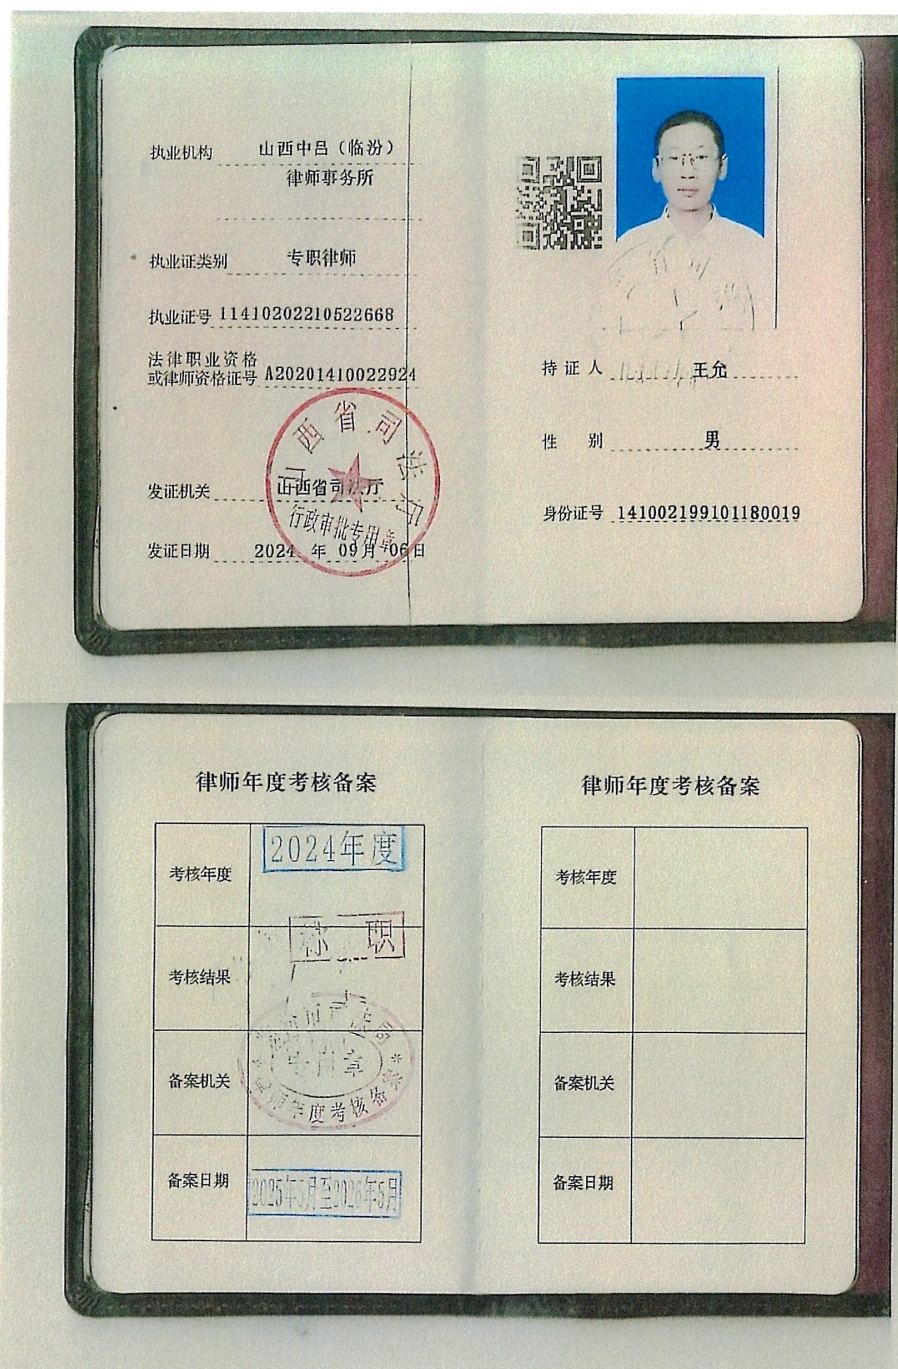 执业机构 山西中吕（临汾）
律师事务所
执业证类别 专职律师
执业证号 11410202210522668
法律职业资格
或律师资格证号 A20201410022924
发证机关 山西省司法厅
发证日期 2024 年 09月 06日
山西省司法厅
行政审批专用章
持证人 王允
性别 男
身份证号 141002199101180019
律师年度考核备案
考核年度 2024年度
考核结果 称职
备案机关
专用章
律师年度考核备案
备案日期 2025年5月至2026年5月
律师年度考核备案
考核年度
考核结果
备案机关
备案日期